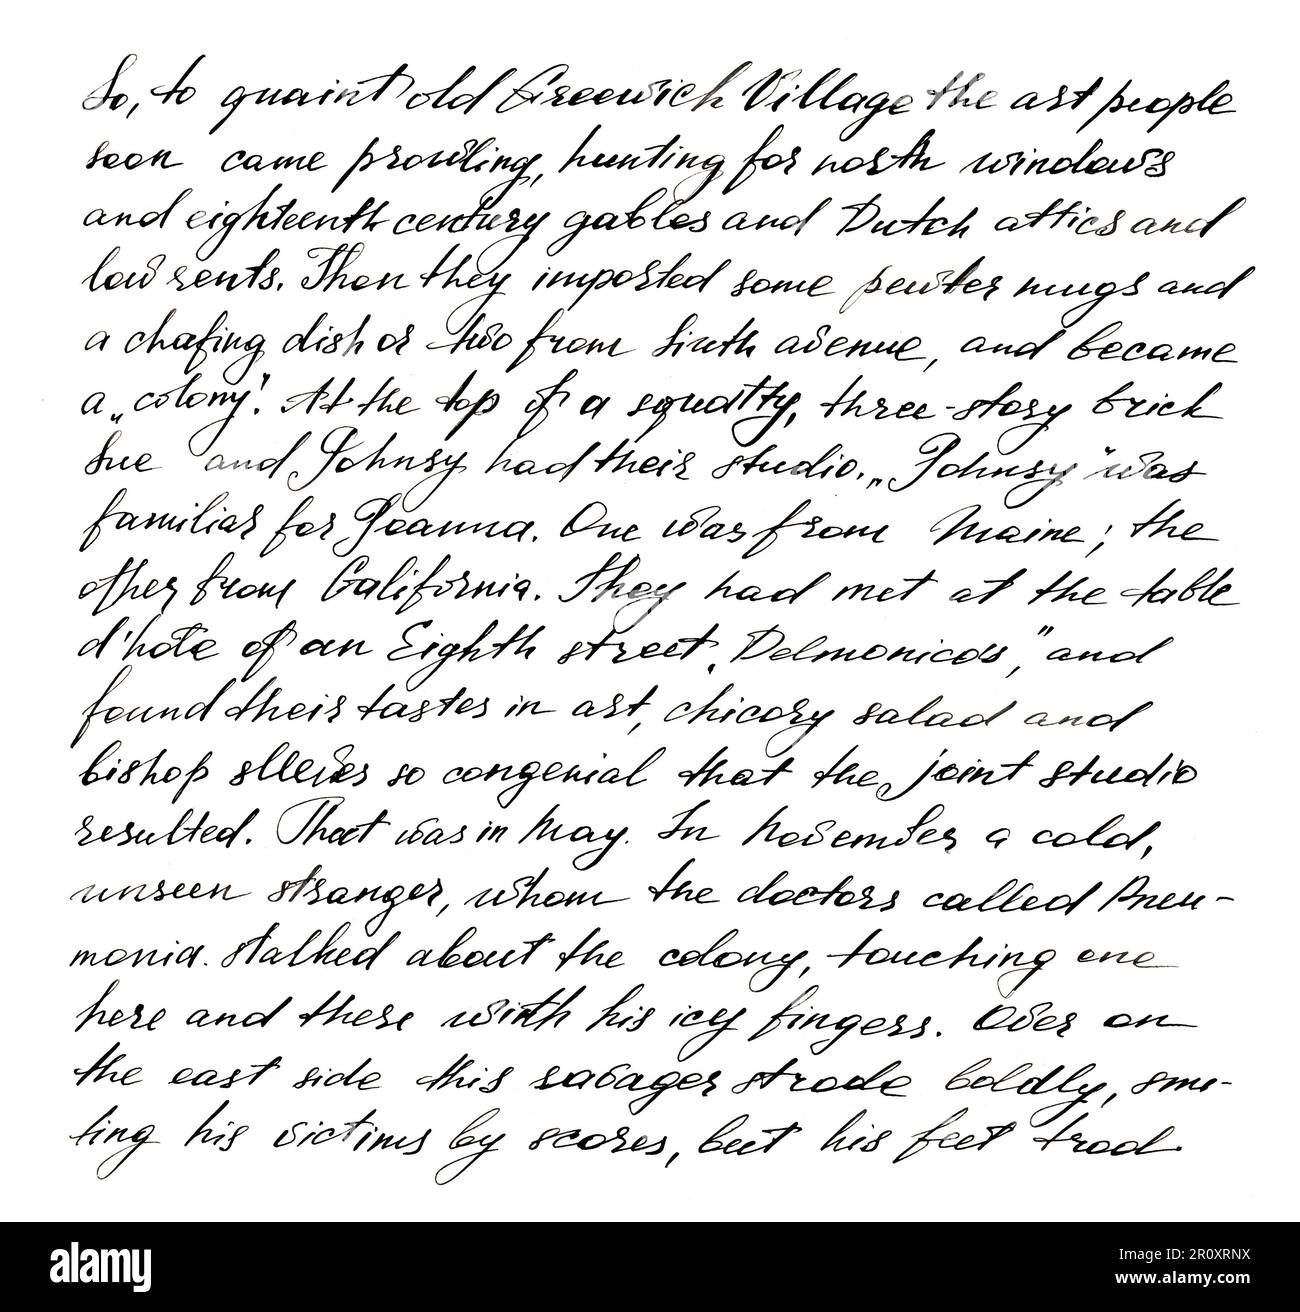 So, to quaint old Greewich Village the art people
soon came prowling, hunting for north windows
and eighteenth century gables and Dutch attics and
low rents. Then they imported some pewter mugs and
a chafing dish or two from Sixth avenue, and became
a „colony". At the top of a squatty, three-story brick
Sue and Johnsy had their studio. „Johnsy" was
familiar for Joanna. One was from Maine; the
other from California. They had met at the table
d'hote of an Eighth street „Delmonicos", and
found their tastes in art, chicory salad and
bishop sleeves so congenial that the joint studio
resulted. That was in May. In November a cold,
unseen stranger, whom the doctors called Pneu-
monia. stalked about the colony, touching one
here and there with his icy fingers. Over on
the east side this savager strode boldly, smi-
ting his victims by scores, but his feet trod
alamy
Image ID: 2R0XRNX
www.alamy.com